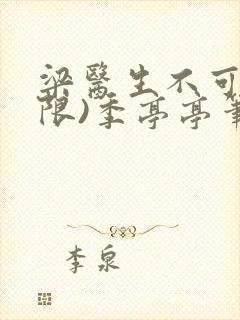 梁醫生不可
限)季亭亭筆
李泉